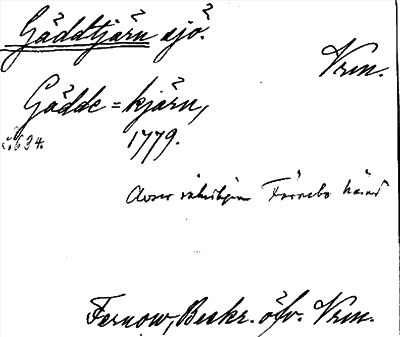 Gäddtjärn sjö.
Vrm.
Gädde = kjärn,
s. 634. 1779.
Avser Färnebo härad
Fernow, Beskr. öfv. Vrm.